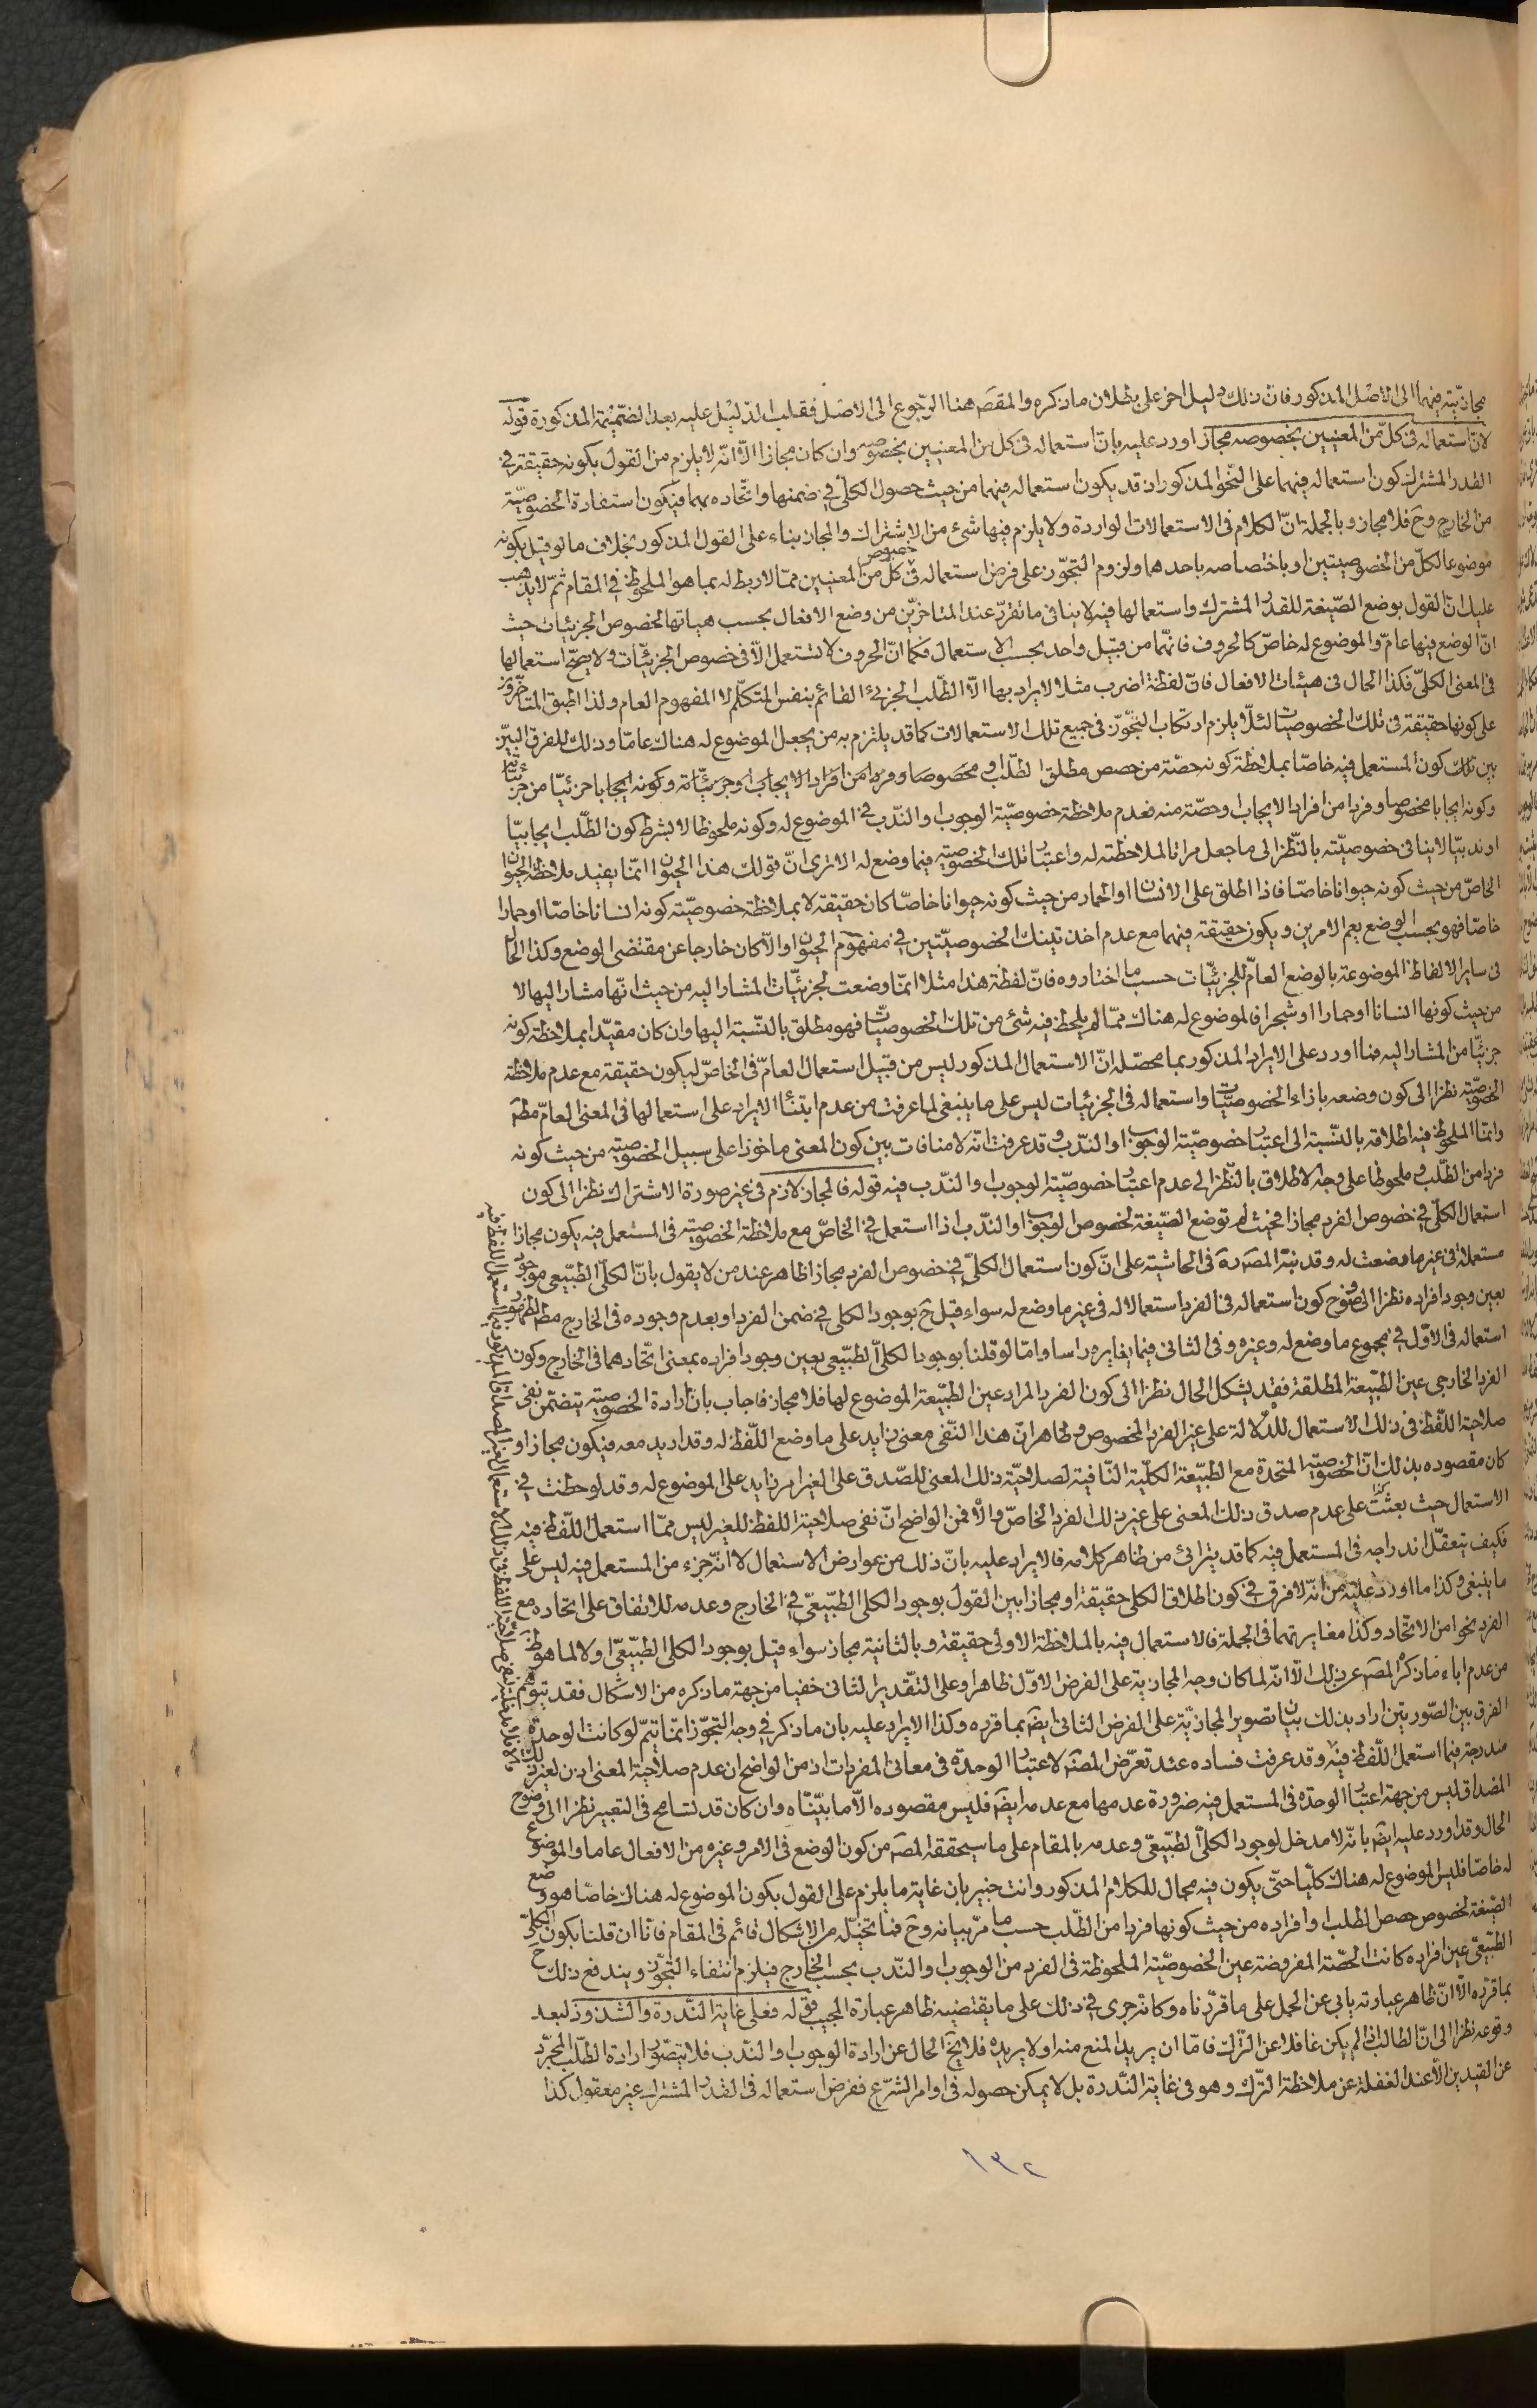 مجازيته فيهما الى الاصل المذكور فان ذلك دليل اخر على بطلان ما ذكره والمقصم هنا الرجوع الى الاصل فقلب الدليل عليه بعد الضميمة المذكورة قوله
لان استعماله فى كل من المعنيين بخصوصه مجاز اورد عليه بان استعماله فى كل من المعنيين بخصوصه وان كان مجازا الا انه لا يلزم من القول بكونه حقيقة فى
القدر المشترك كون استعماله فيهما على النحو المذكور اذ قد يكون استعماله فيهما من حيث حصول الكلى فى ضمنها واتحاده بهما فيكون استفادة الخصوصية
من الخارج وح فلا مجاز وبالجملة ان الكلام فى الاستعمالات الواردة ولا يلزم فيها شئ من الاشتراك والمجاز بناء على القول المذكور بخلاف ما لو قيل بكونه
موضوعا لكل من الخصوصيتين او باختصاصه باحدهما ولزوم التجوز على فرض استعماله فى خصوص كل من المعنيين مما لا ربط له بما هو الملحوظ فى المقام ثم لا يذهب
عليك ان القول بوضع الصيغة للقدر المشترك واستعمالها فيه لا ينافى ما تقرر عند المتاخرين من وضع الافعال بحسب هياتها لخصوص الجزئيات حيث
ان الوضع فيها عام والموضوع له خاص كالحروف فانهما من قبيل واحد بحسب الاستعمال فكما ان الحروف لا تستعمل الا فى خصوص الجزئيات ولا يصح استعمالها
فى المعنى الكلى فكذا الحال فى هيئات الافعال فان لفظة اضرب مثلا لا يراد بها الا الطلب الجزئى القائم بنفس المتكلم لا المفهوم العام ولذا اطبق المتاخرون
على كونها حقيقة فى تلك الخصوصيات لئلا يلزم ارتكاب التجوز فى جميع تلك الاستعمالات كما قد يلتزم به من يجعل الموضوع له هناك عاما وذلك للفرق البين
بين تلك كون المستعمل فيه خاصا بملاحظة كونه حصة من حصص مطلق الطلب ومخصوصا وفردا من افراد الايجاب وجزئياته وكونه ايجابا جزئيا من جزئياته
وكونه ايجابا مخصوصا وفردا من افراد الايجاب وحصة منه فعدم ملاحظة خصوصية الوجوب والندب فى الموضوع له وكونه ملحوظا لا بشرط كون الطلب ايجابيا
او ندبيا لا ينافى خصوصيته بالنظر الى ما جعل مراتا لملاحظته له واعتبار تلك الخصوصية فيما وضع له الا ترى ان قولك هذا الحيوان انما يفيد ملاحظة الحيوان
الخاص من حيث كونه حيوانا خاصا فاذا اطلق على الانسان او الحمار من حيث كونه حيوانا خاصا كان حقيقة لا بملاحظة خصوصيته كونه انسانا خاصا او حمارا
خاصا فهو بحسب الوضع يعم الامرين ويكون حقيقة فيهما مع عدم اخذ تينك الخصوصيتين فى مفهوم الحيوان والا كان خارجا عن مقتضى الوضع وكذا الحال
فى ساير الالفاظ الموضوعة بالوضع العام للجزئيات حسب ما اختاروه فان لفظة هذا مثلا انما وضعت لجزئيات المشار اليه من حيث انها مشار اليها لا
من حيث كونها انسانا او حمارا او شجرا فالموضوع له هناك مما لم يلحظ فيه شئ من تلك الخصوصيات فهو مطلق بالنسبة اليها وان كان مقيدا بملاحظة كونه
جزئيا من المشار اليه فما اورد على الايراد المذكور بما محصله ان الاستعمال المذكور ليس من قبيل استعمال العام فى الخاص ليكون حقيقة مع عدم ملاحظة
الخصوصية نظرا الى كون وضعه بازاء الخصوصيات واستعماله فى الجزئيات ليس على ما ينبغى لما عرفت من عدم ابتناء الايراد على استعمالها فى المعنى العام مطم
وانما الملحوظ فيه اطلاقه بالنسبة الى اعتبار خصوصية الوجوب او الندب وقد عرفت انه لا منافات بين كون المعنى ماخوذا على سبيل الخصوصية من حيث كونه
فردا من الطلب وملحوظا على وجه الاطلاق بالنظر الى عدم اعتبار خصوصية الوجوب والندب فيه قوله فالمجاز لازم فى غير صورة الاشتراك نظرا الى كون
استعمال الكلى فى خصوص الفرد مجازا فحيث لم توضع الصيغة لخصوص الوجوب او الندب اذا استعمل فى الخاص مع ملاحظة الخصوصية فى المستعمل فيه يكون مجازا
مستعملة فى غير ما وضعت له وقد نبه المصم ره فى الحاشية على ان كون استعمال الكلى فى خصوص الفرد مجازا ظاهر عند من لا يقول بان الكلى الطبيعى موجود
بعين وجود افراده نظرا الى وضوح كون استعماله فى الفرد استعمالا له فى غير ما وضع له سواء قيل ح بوجود الكلى فى ضمن الفرد او بعدم وجوده فى الخارج مطم لظهور
استعماله فى الاول فى مجموع ما وضع له وغيره وفى الثانى فيما يغايره راسا واما لو قلنا بوجود الكلى الطبيعى بعين وجود افراده بمعنى اتحادهما فى الخارج وكون
الفرد الخارجى عين الطبيعة المطلقة فقد يشكل الحال نظرا الى كون الفرد المراد عين الطبيعة الموضوع لها فلا مجاز فاجاب بان ارادة الخصوصية يتضمن نفى
صلاحية اللفظ فى ذلك الاستعمال للدلالة على غير الفرد المخصوص وظاهر ان هذا النفى معنى زايد على ما وضع اللفظ له وقد اريد معه فيكون مجازا و
كان مقصوده بذلك ان الخصوصية المتحدة مع الطبيعة الكلية النافية لصلاحية ذلك المعنى للصدق على الغير امر زايد على الموضوع له وقد لوحظت فى
الاستعمال حيث بعثت على عدم صدق ذلك المعنى على غير ذلك الفرد الخاص والا فمن الواضح ان نفى صلاحية اللفظ للغير ليس مما استعمل اللفظ فيه
فكيف يتعقل اندراجه فى المستعمل فيه كما قد يترائى من ظاهر كلامه فالايراد عليه بان ذلك من عوارض الاستعمال لا انه جزء من المستعمل فيه ليس على
ما ينبغى وكذا ما اورد عليه من انه لا فرق فى كون اطلاق الكلى حقيقة او مجازا بين القول بوجود الكلى الطبيعى فى الخارج وعدمه للاتفاق على اتحاده مع
الفرد نحوا من الاتحاد وكذا مغايرتهما فى الجملة فالاستعمال فيه بالملاحظة الاولى حقيقة وبالثانية مجاز سواء قيل بوجود الكلى الطبيعى او لا لما هو ظاهر
من عدم اباء ما ذكره المصم عن ذلك الا انه لما كان وجه المجازية على الفرض الاول ظاهرا وعلى التقدير الثانى خفيا من جهة ما ذكره من الاشكال فقد يتوهم
الفرق بين الصورتين اراد بذلك بيان تصوير المجازية على الفرض الثانى ايضم بما قرره وكذا الايراد عليه بان ما ذكر فى وجه التجوز انما يتم لو كانت الوحدة
مندرجة فيما استعمل اللفظ فيه وقد عرفت فساده عند تعرض المصم لاعتبار الوحدة فى معانى المفردات اذ من الواضح ان عدم صلاحية المعنى لغير ذلك
المصداق ليس من جهة اعتبار الوحدة فى المستعمل فيه ضرورة عدمها مع عدمه ايضم فليس مقصوده الا ما بيناه وان كان قد تسامح فى التعبير نظرا الى وضوح
الحال وقد اورد عليه ايضم بانه لا مدخل لوجود الكلى الطبيعى وعدمه بالمقام على ما سيحققه المصم من كون الوضع فى الامر وغيره من الافعال عاما والموضوع
له خاصا فليس الموضوع له هناك كليا حتى يكون فيه مجال للكلام المذكور وانت خبير بان غاية ما يلزم على القول بكون الموضوع له هناك خاصا هو وضع
الصيغة لخصوص حصص الطلب وافراده من حيث كونها فردا من الطلب حسب ما مر بيانه وح فما تخيله من الاشكال قائم فى المقام فانا ان قلنا بكون الكلى
الطبيعى عين افراده كانت الحصة المفروضة عين الخصوصية الملحوظة فى الفرد من الوجوب والندب بحسب الخارج فيلزم انتفاء التجوز ويندفع ذلك ح
بما قرره الا ان ظاهر عبارته يابى عن الحمل على ما قررناه وكانه جرى فى ذلك على ما يقتضيه ظاهر عبارة المجيب قوله فعلى غاية الندرة والشذوذ لبعد
وقوعه نظرا الى ان الطالب اذا لم يكن غافلا عن الترك فاما ان يريد المنع منه او لا يريده فلا يخ الحال عن ارادة الوجوب والندب فلا يتصور ارادة الطلب المجرد
عن القيدين الا عند الغفلة عن ملاحظة الترك وهو فى غاية الندرة بل لا يمكن حصوله فى اوامر الشرع ففرض استعماله فى القدر المشترك غير معقول كذا
١٣٢